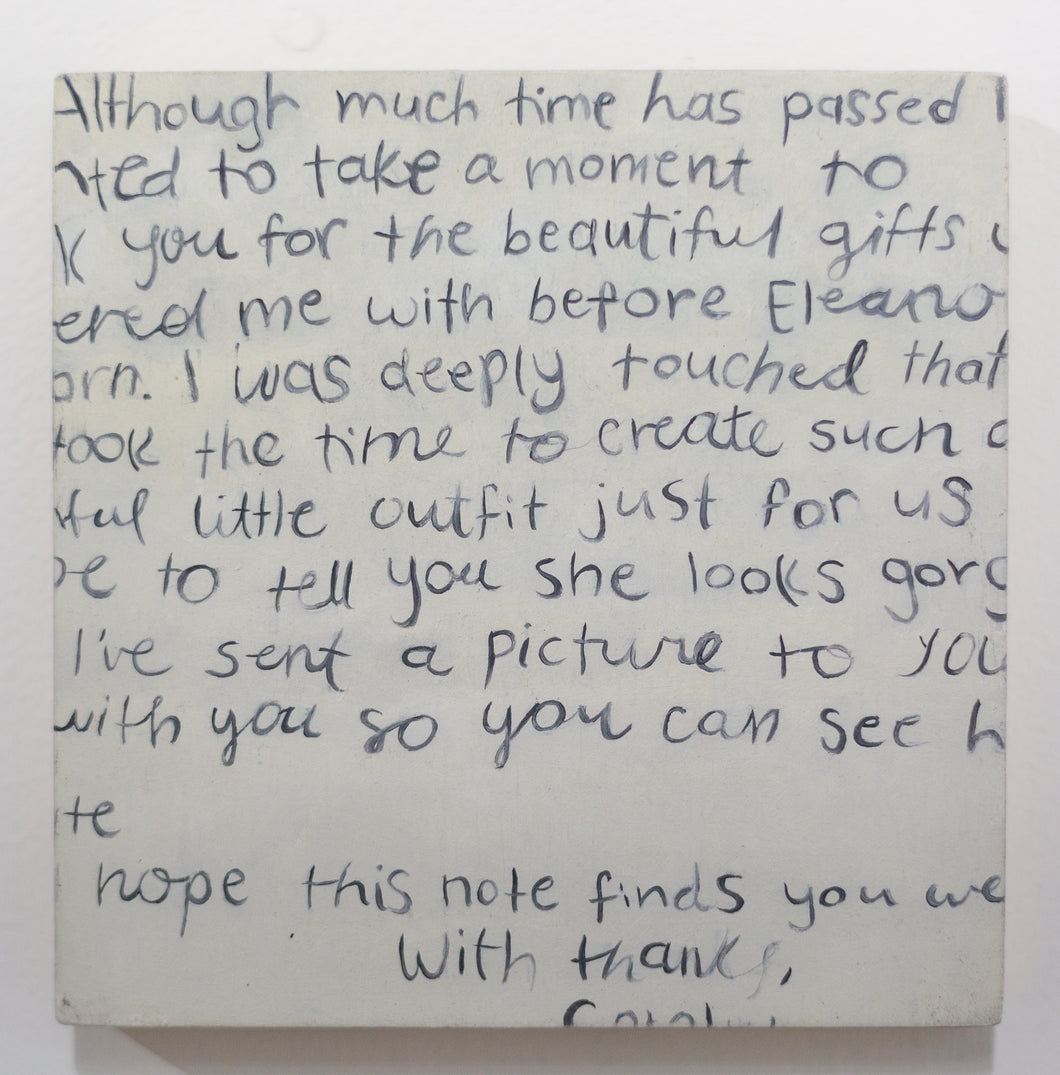 Although much time has passed I
nted to take a moment to
k you for the beautiful gifts
ered me with before Eleano
orn. I was deeply touched that
took the time to create such a
tiful little outfit just for us
pe to tell you she looks gorg
I've sent a picture to you
with you so you can see h
te
hope this note finds you we
With thanks,